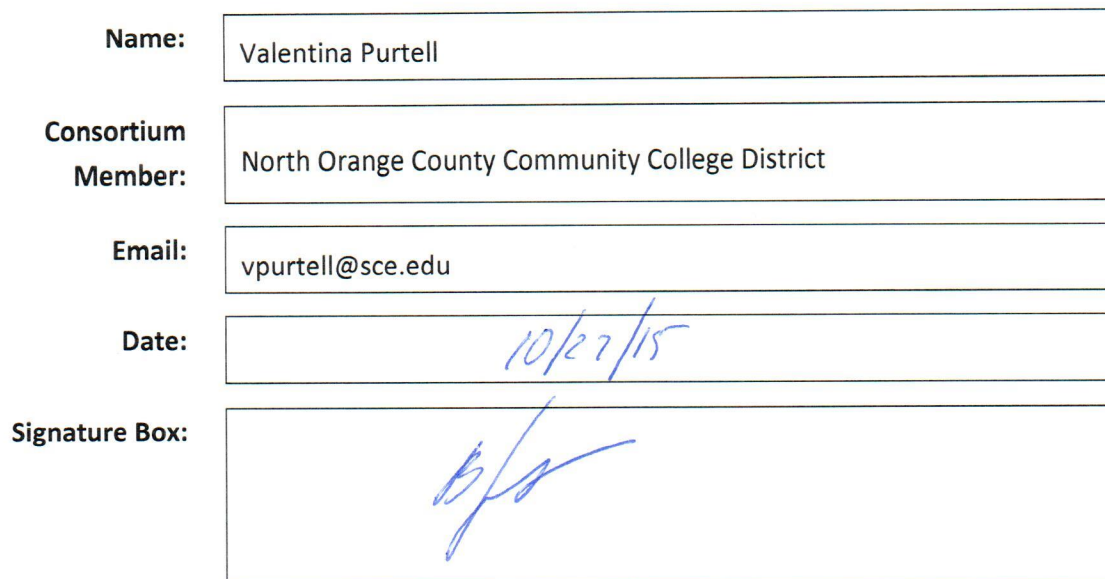 Name:
Valentina Purtell
Consortium
Member:
North Orange County Community College District
Email:
vpurtell@sce.edu
Date:
10/27/15
Signature Box: